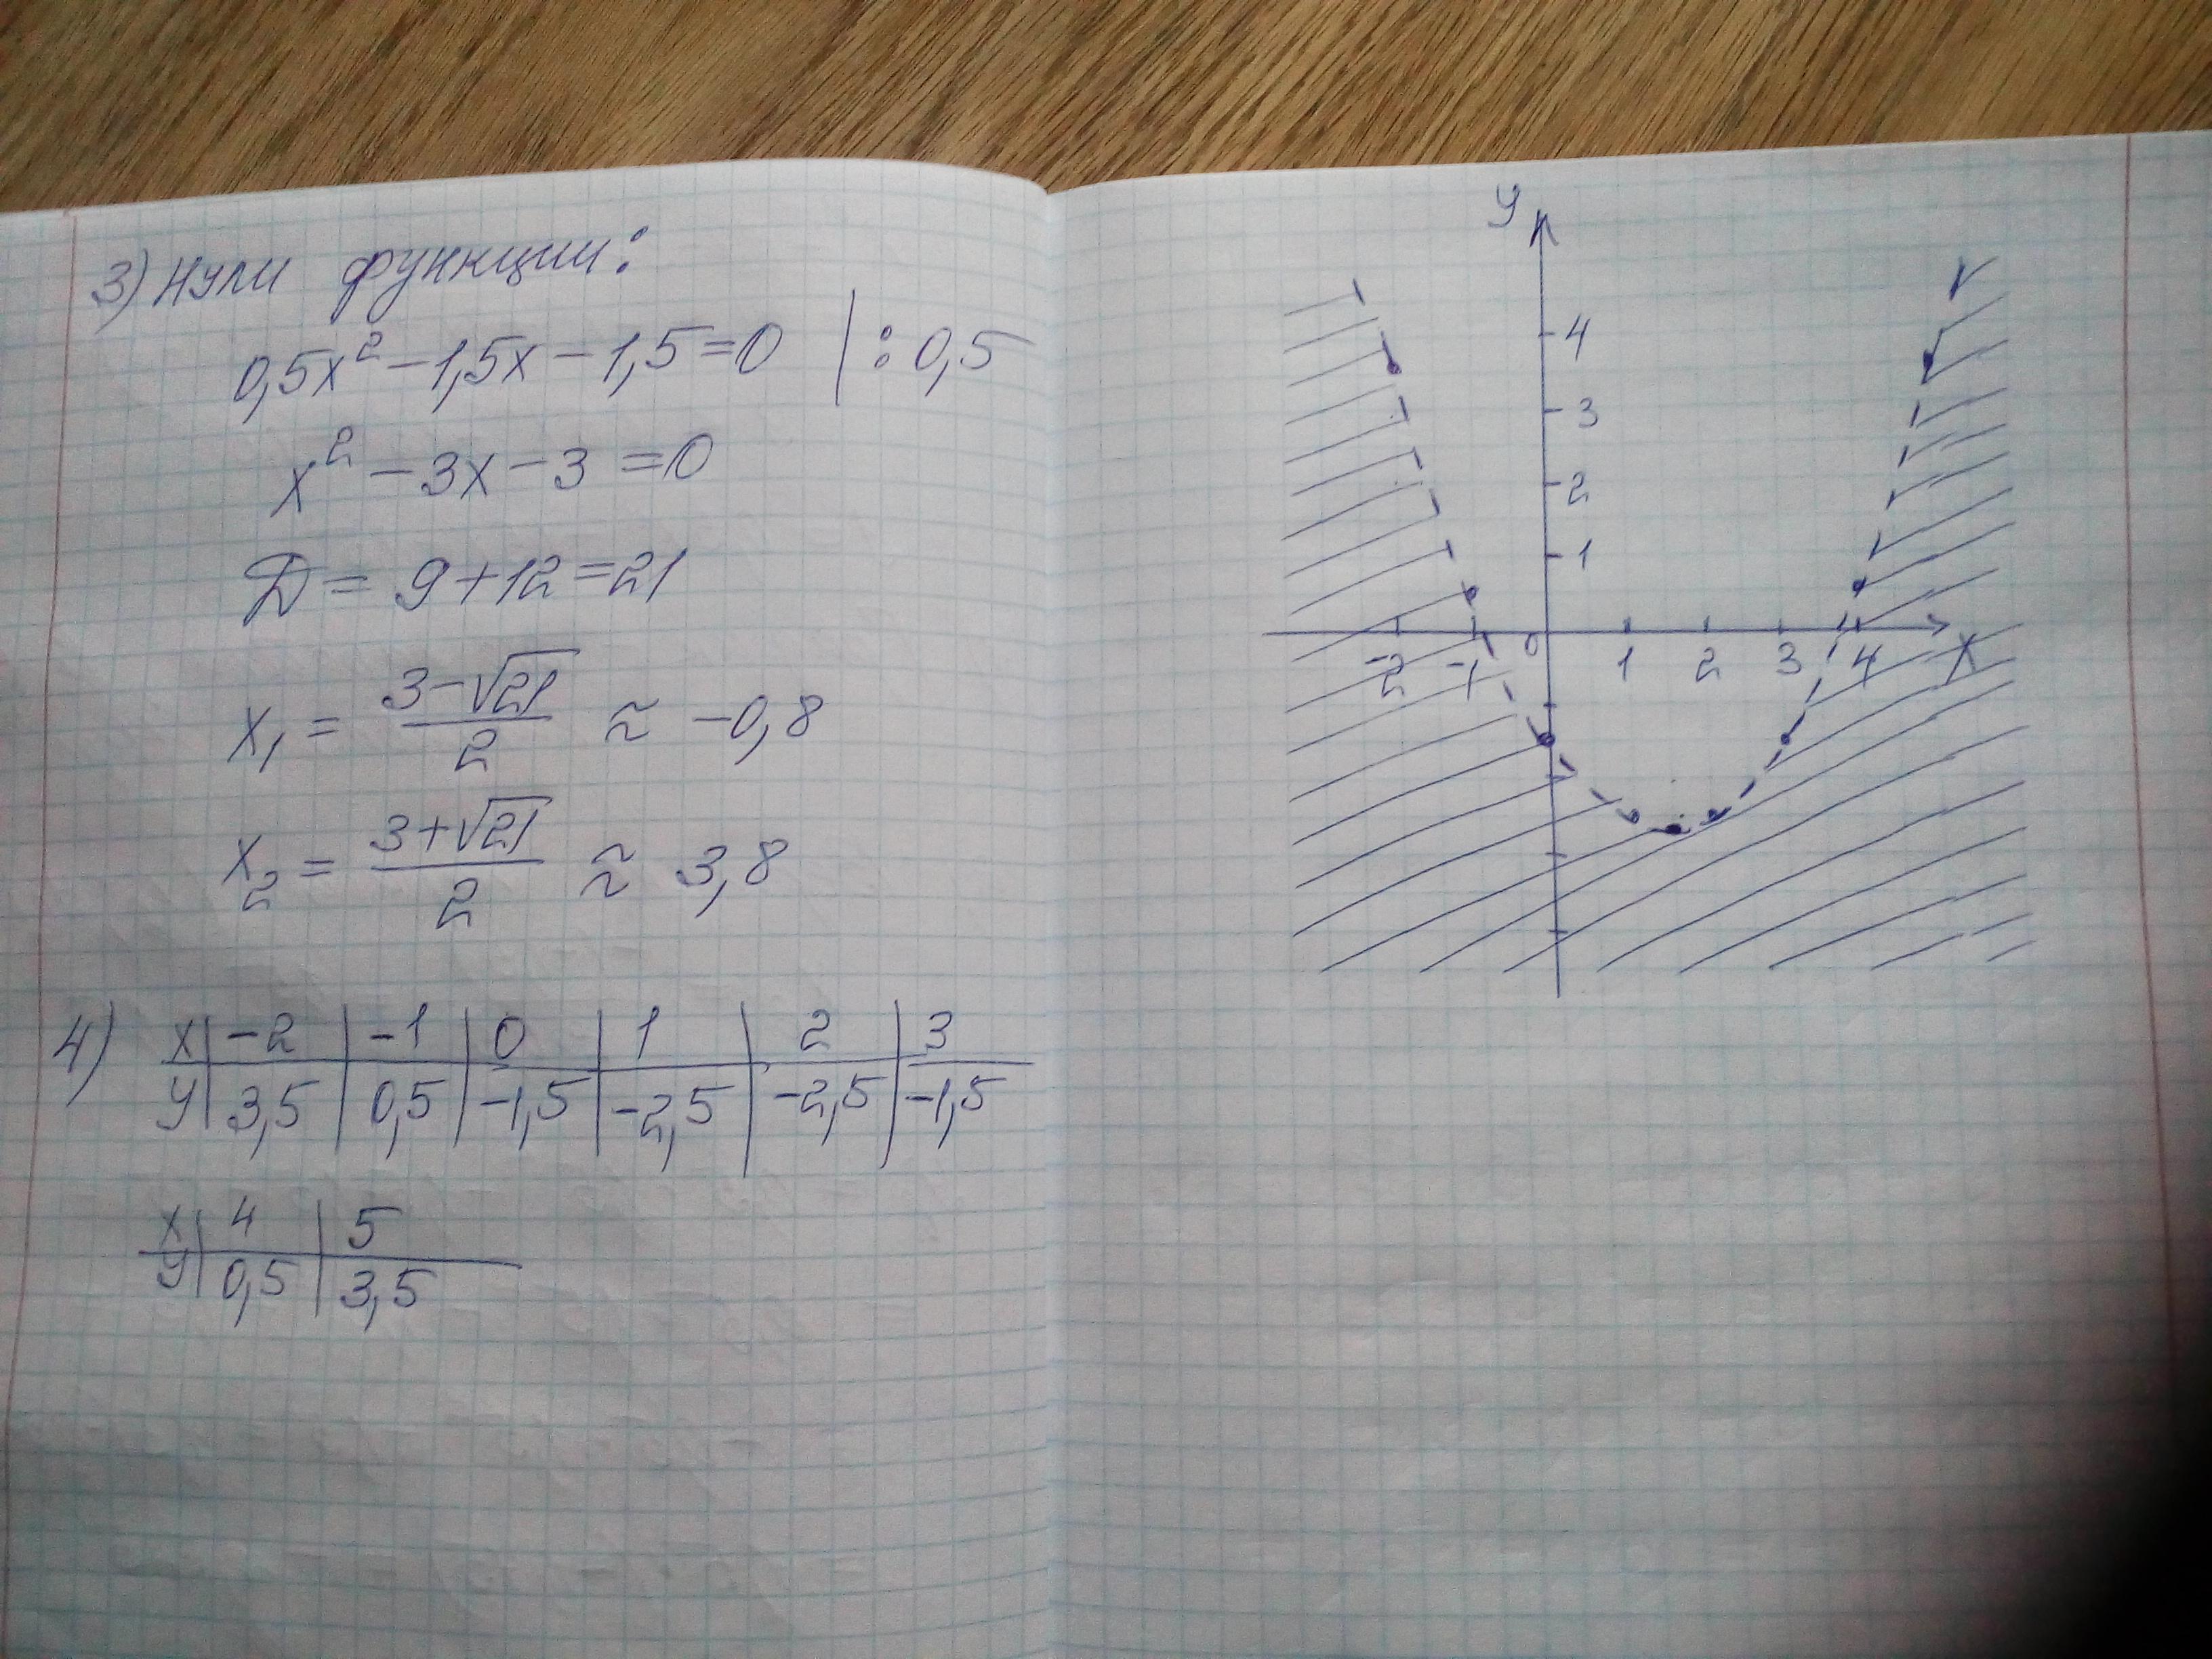 3) Нули функции:
0,5x² - 1,5x - 1,5 = 0 | : 0,5
x² - 3x - 3 = 0
Д = 9 + 12 = 21
x₁ = (3 - √21)/2 ≈ -0,8
x₂ = (3 + √21)/2 ≈ 3,8
4) x | -2 | -1 | 0 | 1 | 2 | 3
y | 3,5 | 0,5 | -1,5 | -2,5 | -2,5 | -1,5
x | 4 | 5
y | 0,5 | 3,5
y
4
3
2
1
-2 -1 0 1 2 3 4 x